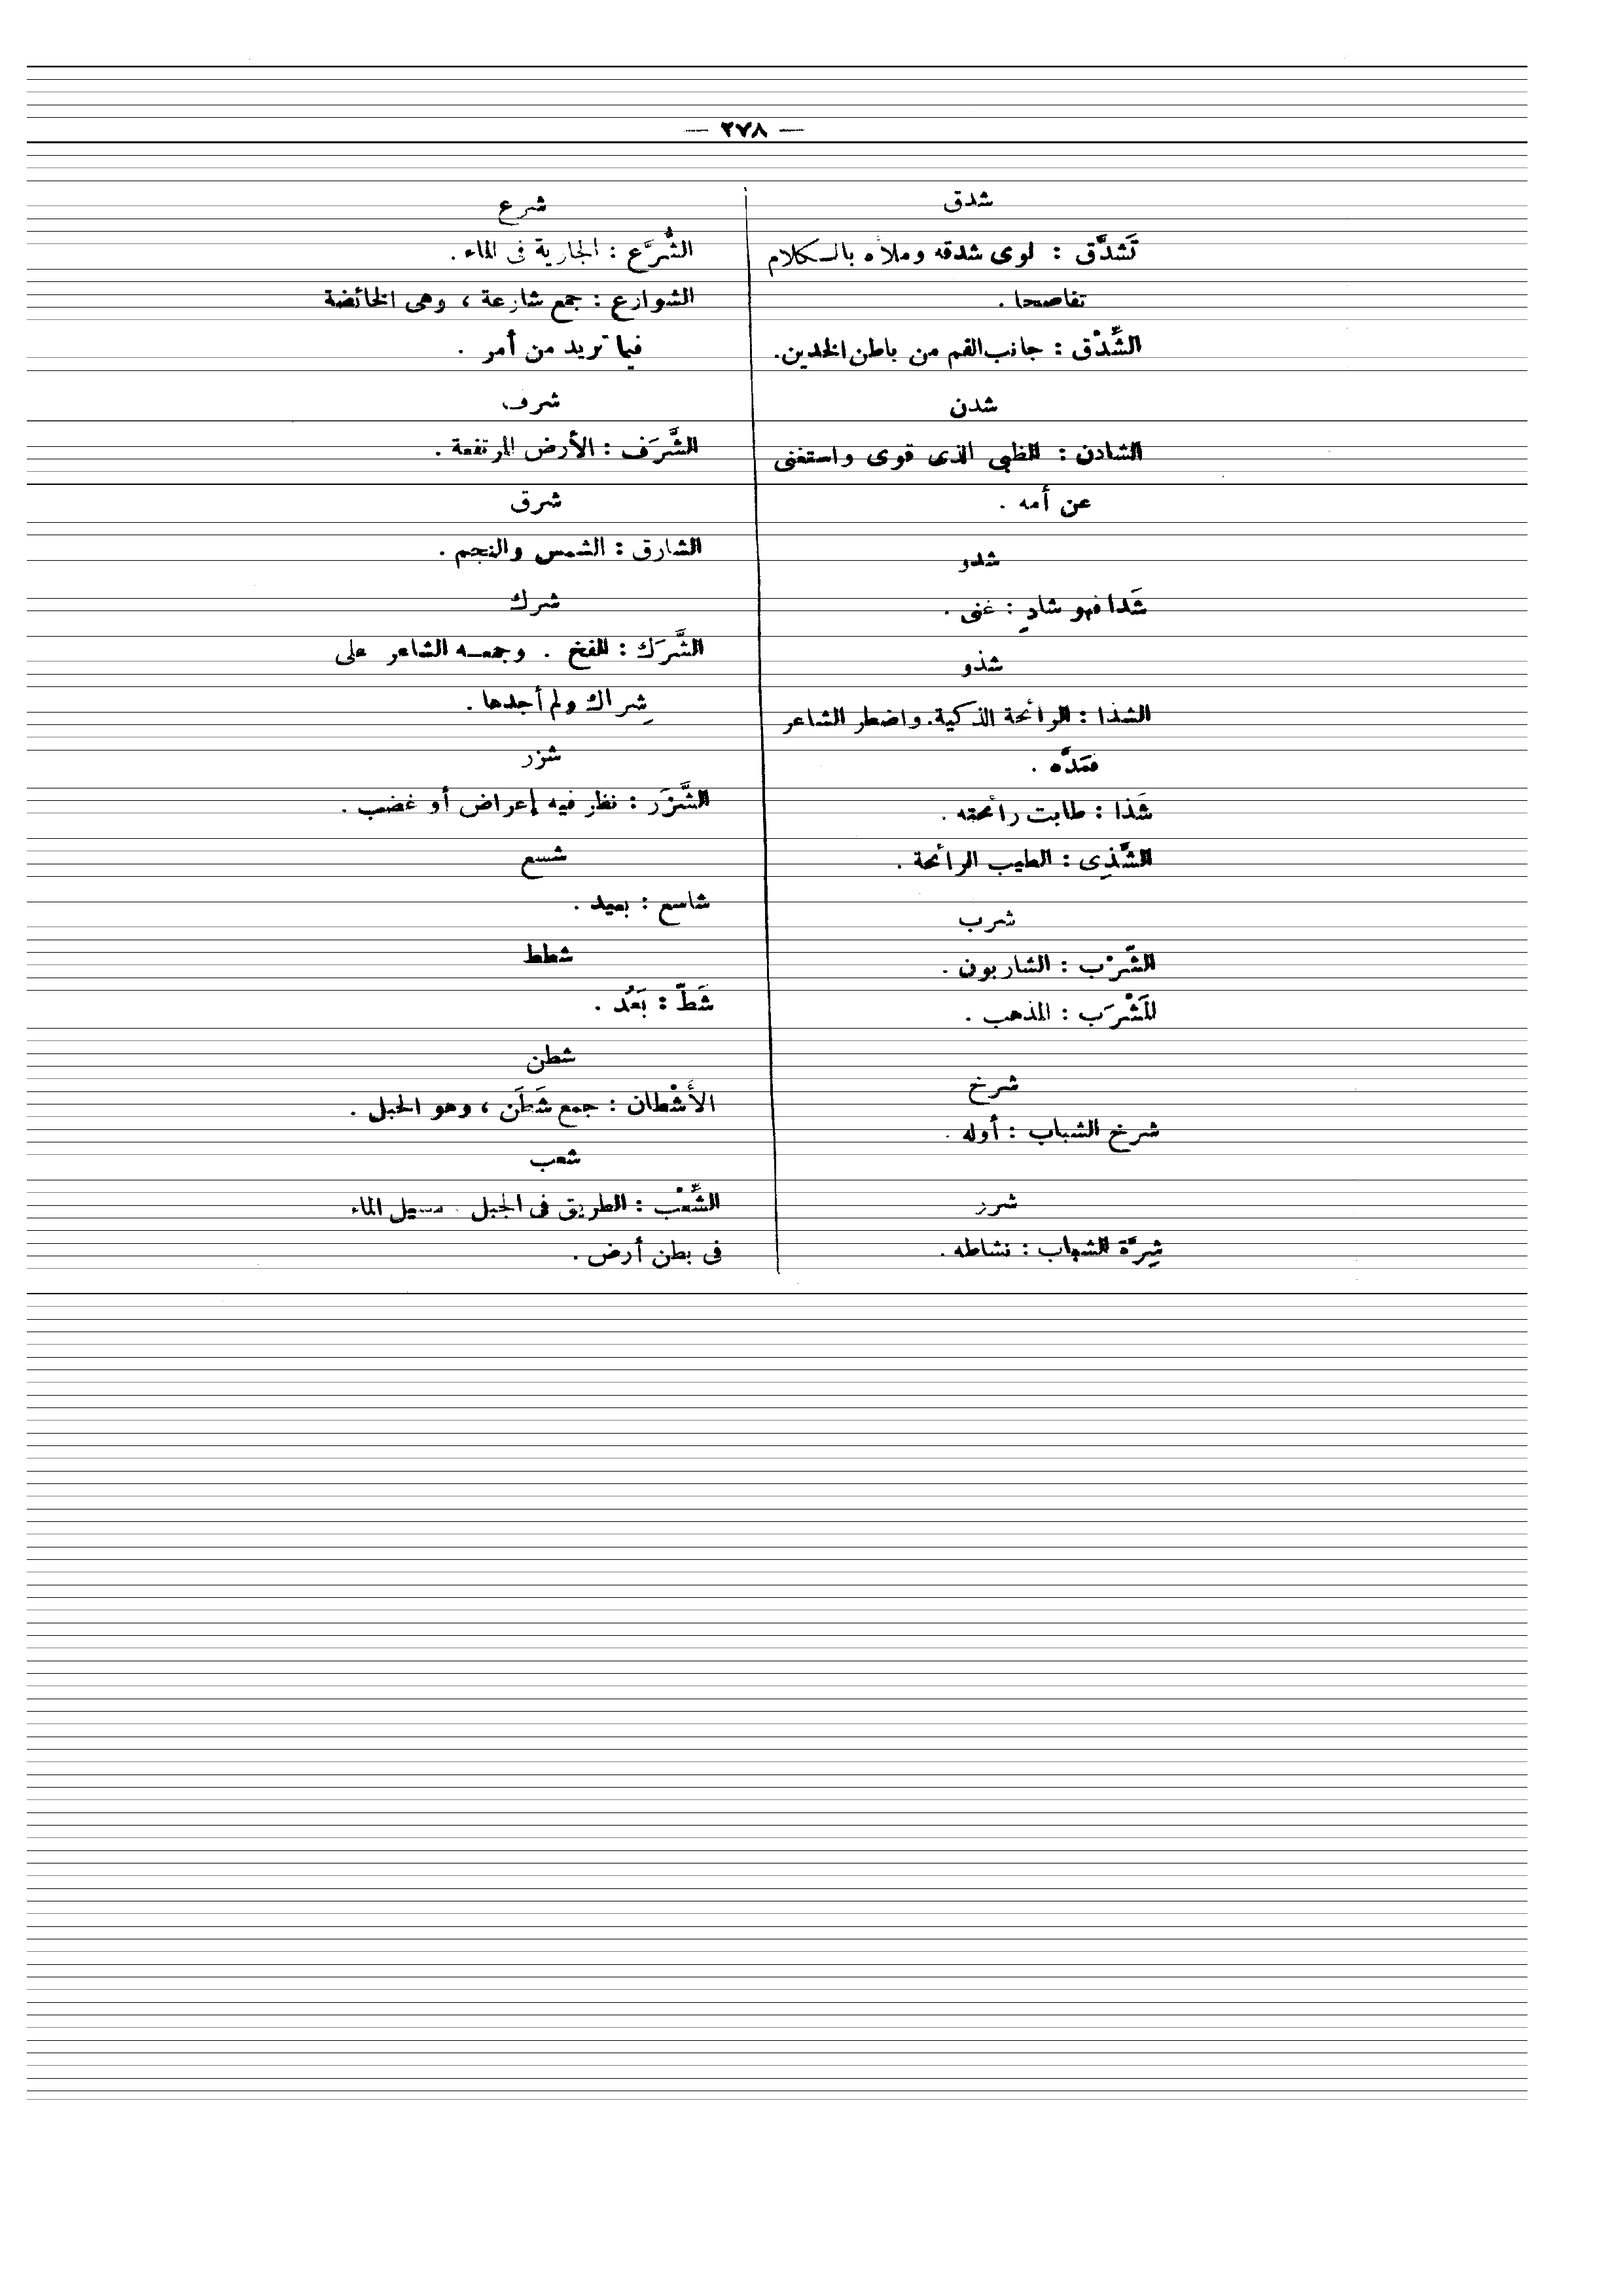 — ٢٧٨ —
شدق
تَشدَّق : لوى شدقه وملأه بالكلام
تفاصحا .
الشِّدْق : جانب الفم من باطن الخدين.
شدن
الشادن : الظبى الذى قوى واستغنى
عن أمه .
شدو
شَدا فهو شادٍ : غنى .
شذو
الشذا : الرائحة الذكية. واضطر الشاعر
فمَدَّه .
شَذا : طابت رائحته .
الشَّذِى : الطيب الرائحة .
شرب
الشَّرْب : الشاربون .
المَشْرَب : المذهب .
شرخ
شرخ الشباب : أوله .
شرر
شِرَّة الشباب : نشاطه .
شرع
الشُّرَّع : الجارية فى الماء .
الشوارع : جمع شارعة ، وهى الخائضة
فيما تريد من أمر .
شرف
الشَّرَف : الأرض المرتفعة .
شرق
الشارق : الشمس والنجم .
شرك
الشَّرَك : الفخ . وجمعه الشاعر على
شِراك ولم أجدها .
شزر
الشَّزَر : نظر فيه إعراض أو غضب .
شسع
شاسع : بعيد .
شطط
شَطّ : بَعُد .
شطن
الأَشْطان : جمع شَطَن ، وهو الحبل .
شعب
الشِّعْب : الطريق فى الجبل . مسيل الماء
فى بطن أرض .